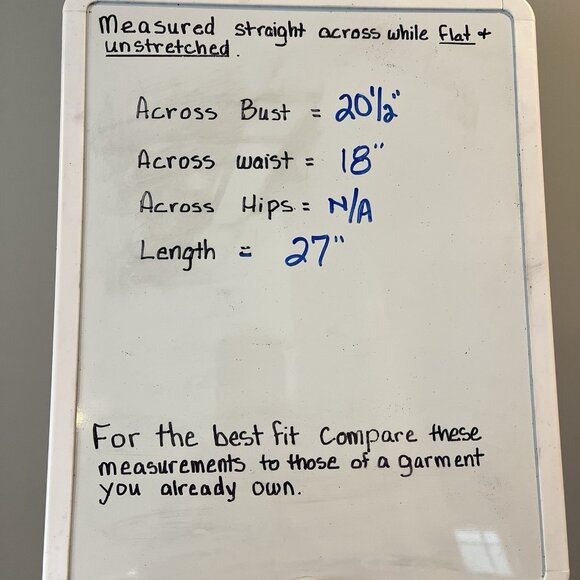 Measured straight across while flat +
unstretched.
Across Bust = 20 1/2"
Across waist = 18"
Across Hips = N/A
Length = 27"
For the best fit compare these
measurements to those of a garment
you already own.